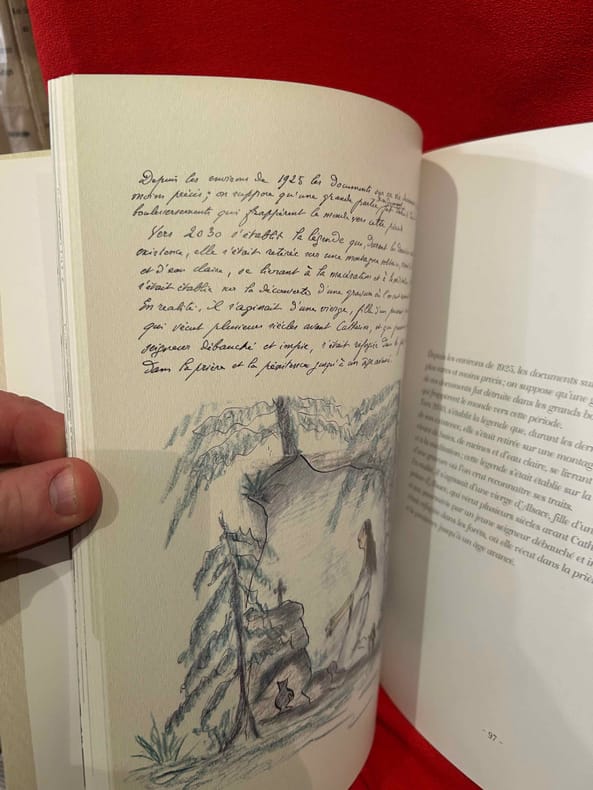 Depuis les environs de 1925 les documents sur sa vie
moins précis ; on suppose qu'une grande partie fut
bouleversements qui frappèrent le monde vers cette
Vers 2030 s'établit la légende que, durant les
existence, elle s'était retirée sur une montagne
et d'eau claire, se livrant à la macération et à la
s'était établie sur la découverte d'une gravure où l'on
En réalité, il s'agissait d'une vierge, fille d'un
qui vécut plusieurs siècles avant Catherine, et
seigneur débauché et impie, s'était réfugiée dans
dans la prière et la pénitence jusqu'à un âge avancé.
Depuis les environs de 1925, les documents
plus rares et moins précis ; on suppose qu'une
ses documents fut détruite dans les grands
qui frappèrent le monde vers cette période.
Vers 2030, s'établit la légende que, durant les
de son existence, elle s'était retirée sur une
de fruits, de racines et d'eau claire, se livrant
et à la méditation ; cette légende s'était établie sur la
d'une gravure où l'on crut reconnaître ses traits.
En réalité il s'agissait d'une vierge d'Alsace, fille d'un
prince d'Alsace, qui vécut plusieurs siècles avant
et qui, poursuivie par un jeune seigneur débauché et
s'était réfugiée dans les forêts, où elle vécut dans la
et la pénitence jusqu'à un âge avancé.
- 97 -